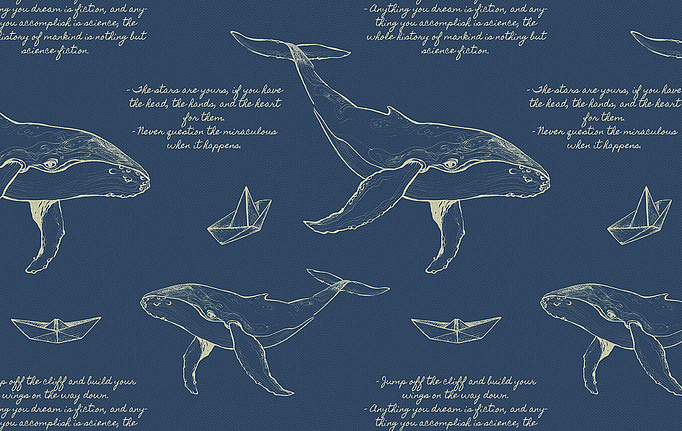 ng you dream is fiction, and any-
you accomplish is science, the
history of mankind is nothing but
science fiction.
- Anything you dream is fiction, and any-
thing you accomplish is science, the
whole history of mankind is nothing but
science fiction.
- The stars are yours, if you have
the head, the hands, and the heart
for them.
- Never question the miraculous
when it happens.
- The stars are yours, if you have
the head, the hands, and the heart
for them.
- Never question the miraculous
when it happens.
p off the cliff and build your
wings on the way down.
ng you dream is fiction, and any-
you accomplish is science, the
- Jump off the cliff and build your
wings on the way down.
- Anything you dream is fiction, and any-
thing you accomplish is science, the